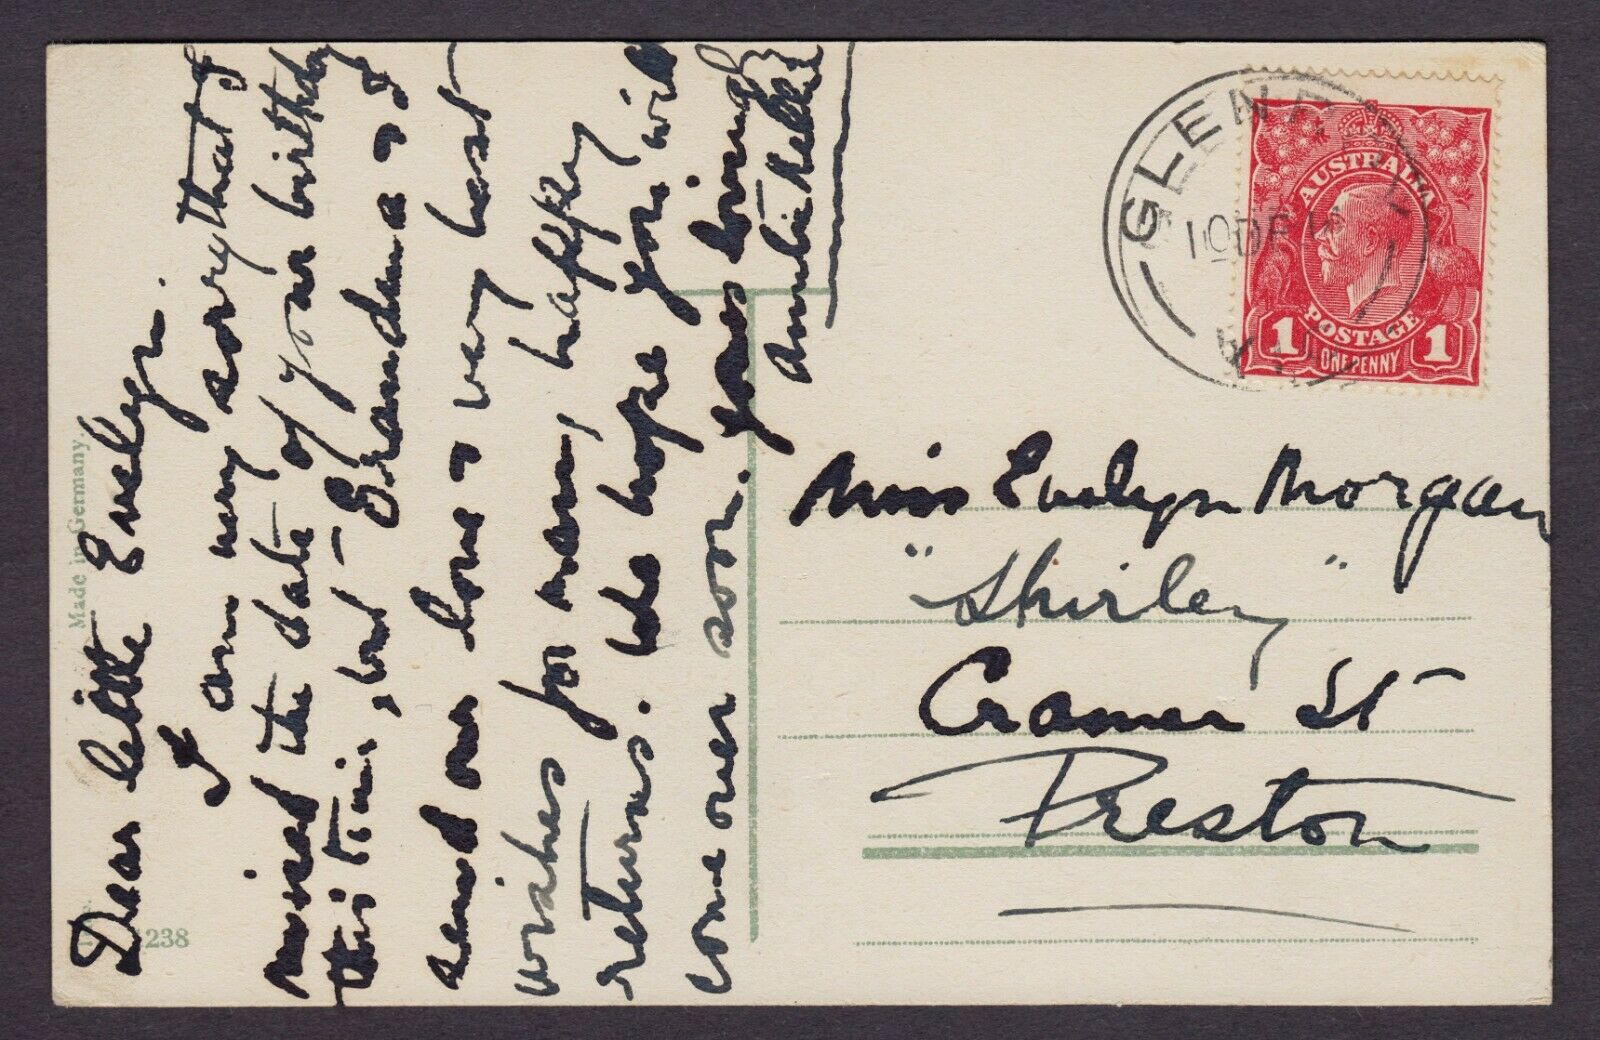 Dear little Evelyn.
I am very sorry that I
missed the date of your birthday
this time, but Grandma & I
send our love & very best
wishes for many happy
returns. We hope you will
come over soon. yours lovingly
Auntie Nellie
Made in Germany.
238
GLEN
10 DE
AUSTRALIA
POSTAGE
1 ONE PENNY 1
Miss Evelyn Morgan
"Shirley"
Cramer St
Preston